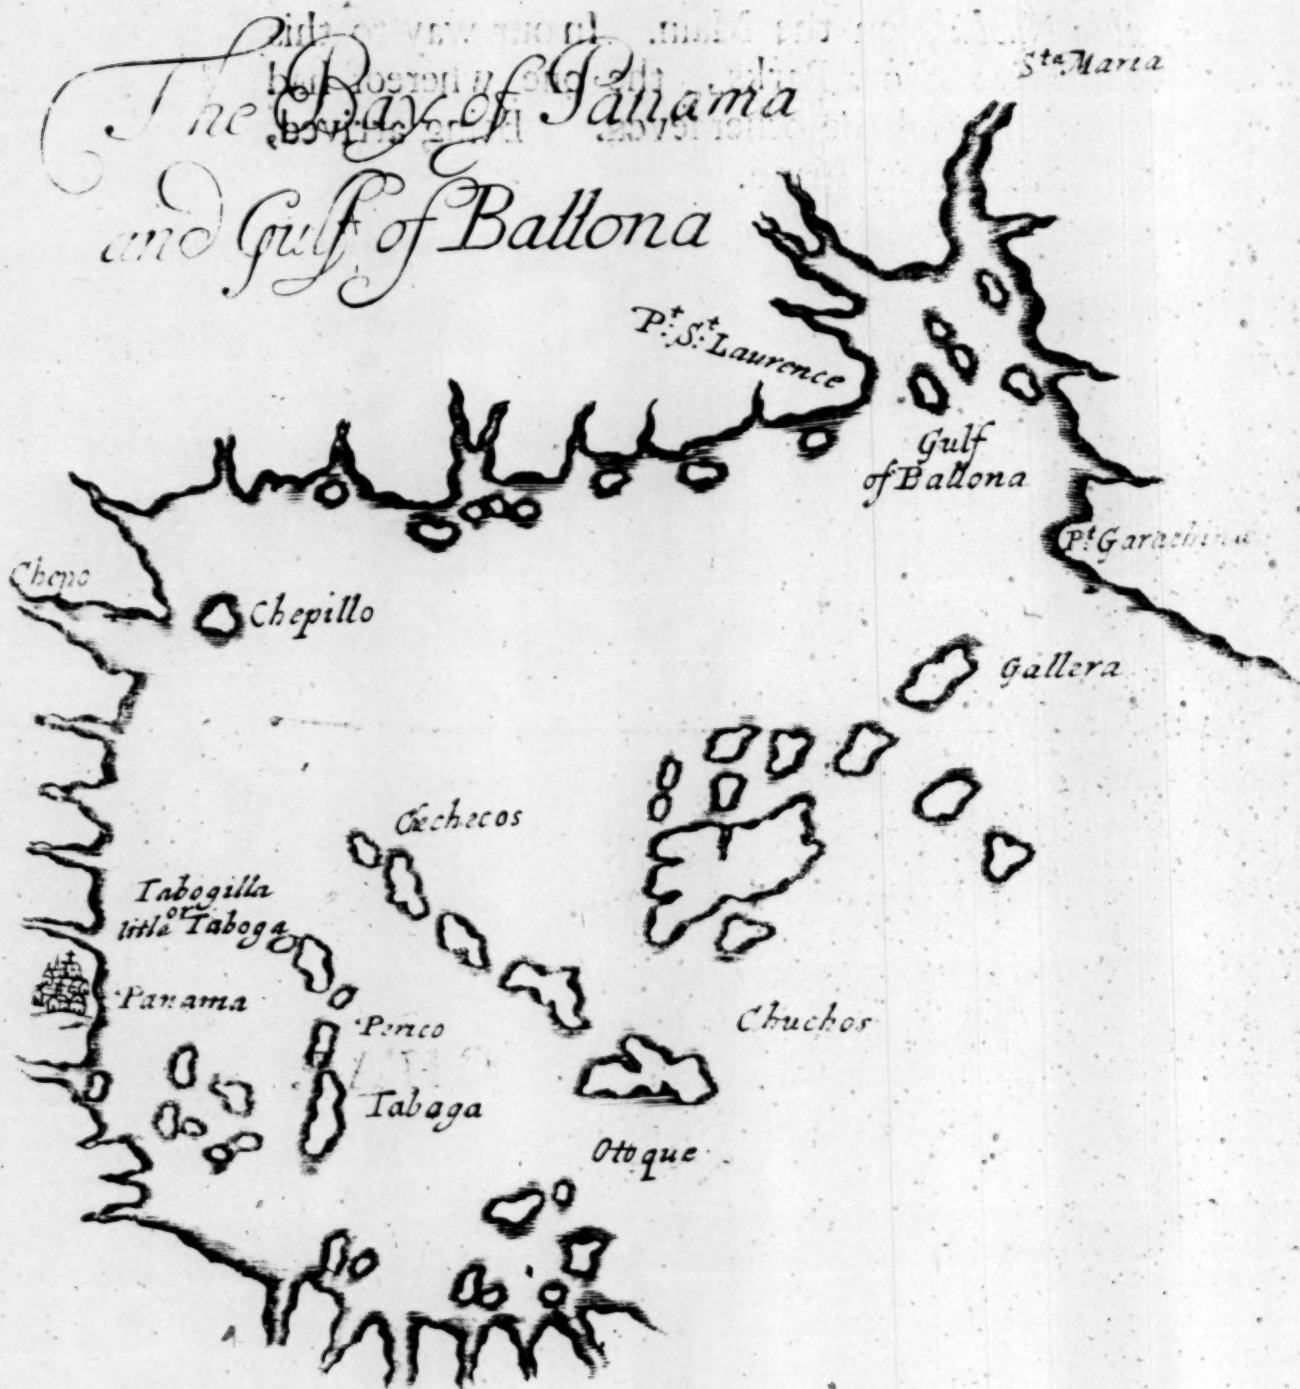 The Bay of Panama
and Gulf of Ballona
Sta Maria
Pt. St. Laurence
Gulf
of Ballona
Pt Garachina
Chepo
Chepillo
Gallera
Chechecos
Tabogilla
or
litle Taboga
Panama
Perico
Chuchos
Tabaga
Otoque